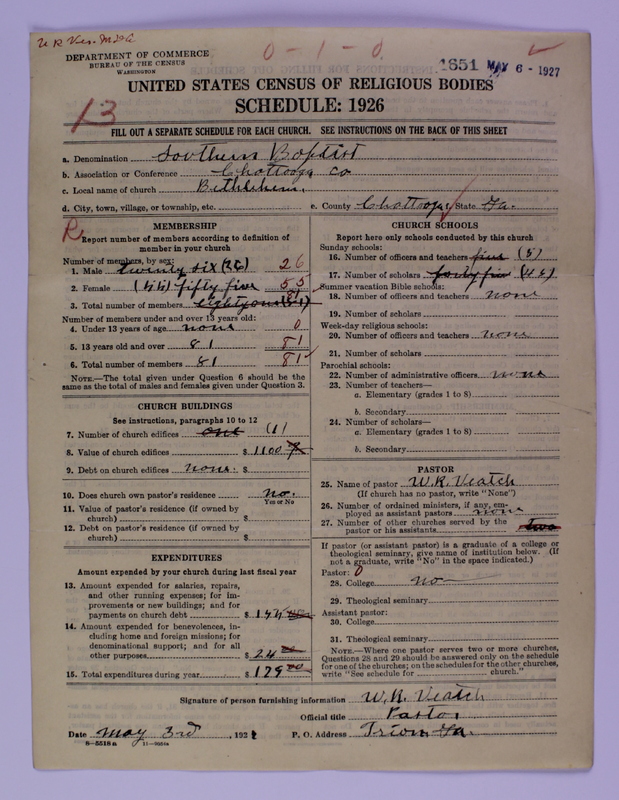 U R Ves. M & A
DEPARTMENT OF COMMERCE
BUREAU OF THE CENSUS
WASHINGTON
0-1-0
1651 MAY 6 - 1927
UNITED STATES CENSUS OF RELIGIOUS BODIES
SCHEDULE: 1926
13
FILL OUT A SEPARATE SCHEDULE FOR EACH CHURCH. SEE INSTRUCTIONS ON THE BACK OF THIS SHEET
a. Denomination Southern Baptist
b. Association or Conference Chattooga Co
c. Local name of church Bethlehem.
d. City, town, village, or township, etc.
e. County Chattooga State Ga.
R
MEMBERSHIP
Report number of members according to definition of
member in your church
Number of members, by sex:
1. Male twenty six (26) 26
2. Female (55) fifty five 55
3. Total number of members eighty one (81) 81
Number of members under and over 13 years old:
4. Under 13 years of age none 0
5. 13 years old and over 81 81
6. Total number of members 81 81
NOTE.—The total given under Question 6 should be the
same as the total of males and females given under Question 3.
CHURCH BUILDINGS
See instructions, paragraphs 10 to 12
7. Number of church edifices one (1)
8. Value of church edifices $ 1100
9. Debt on church edifices none. $
10. Does church own pastor's residence no.
Yes or No
11. Value of pastor's residence (if owned by
church) $
12. Debt on pastor's residence (if owned by
church) $
EXPENDITURES
Amount expended by your church during last fiscal year
13. Amount expended for salaries, repairs,
and other running expenses; for im-
provements or new buildings; and for
payments on church debt $
14. Amount expended for benevolences, in-
cluding home and foreign missions; for
denominational support; and for all
other purposes $ 24
15. Total expenditures during year $ 179 00
CHURCH SCHOOLS
Report here only schools conducted by this church
Sunday schools:
16. Number of officers and teachers five (5)
17. Number of scholars forty five (45)
Summer vacation Bible schools:
18. Number of officers and teachers none
19. Number of scholars
Week-day religious schools:
20. Number of officers and teachers none
21. Number of scholars
Parochial schools:
22. Number of administrative officers none
23. Number of teachers—
a. Elementary (grades 1 to 8)
b. Secondary
24. Number of scholars—
a. Elementary (grades 1 to 8)
b. Secondary
PASTOR
25. Name of pastor W. R. Veatch
(If church has no pastor, write "None")
26. Number of ordained ministers, if any, em-
ployed as assistant pastors none
27. Number of other churches served by the
pastor or his assistants two
If pastor (or assistant pastor) is a graduate of a college or
theological seminary, give name of institution below. (If
not a graduate, write "No" in the space indicated.)
Pastor: 0
28. College no
29. Theological seminary
Assistant pastor:
30. College
31. Theological seminary
NOTE.—Where one pastor serves two or more churches,
Questions 28 and 29 should be answered only on the schedule
for one of the churches; on the schedules for the other churches,
write "See schedule for church."
Signature of person furnishing information W. R. Veatch
Official title Pastor
Date May 3rd, 192
P. O. Address Trion Ga.
8-5518a 11-9984a